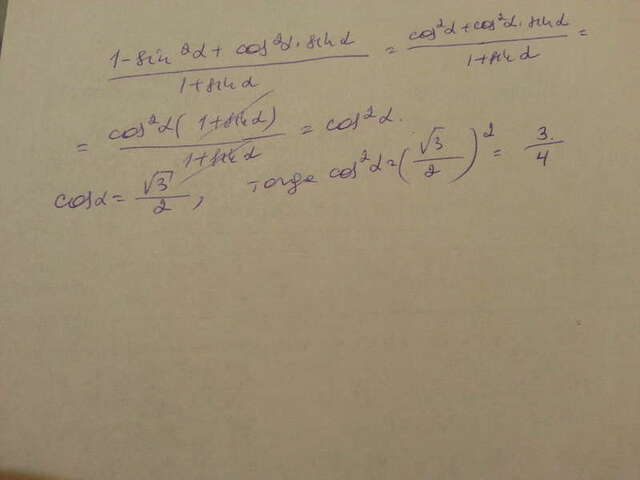 (1 - sin²α + cos²α · sinα) / (1 + sinα) = (cos²α + cos²α · sinα) / (1 + sinα) =
= cos²α (1 + sinα) / (1 + sinα) = cos²α.
cosα = √3/2, тогда cos²α = (√3/2)² = 3/4